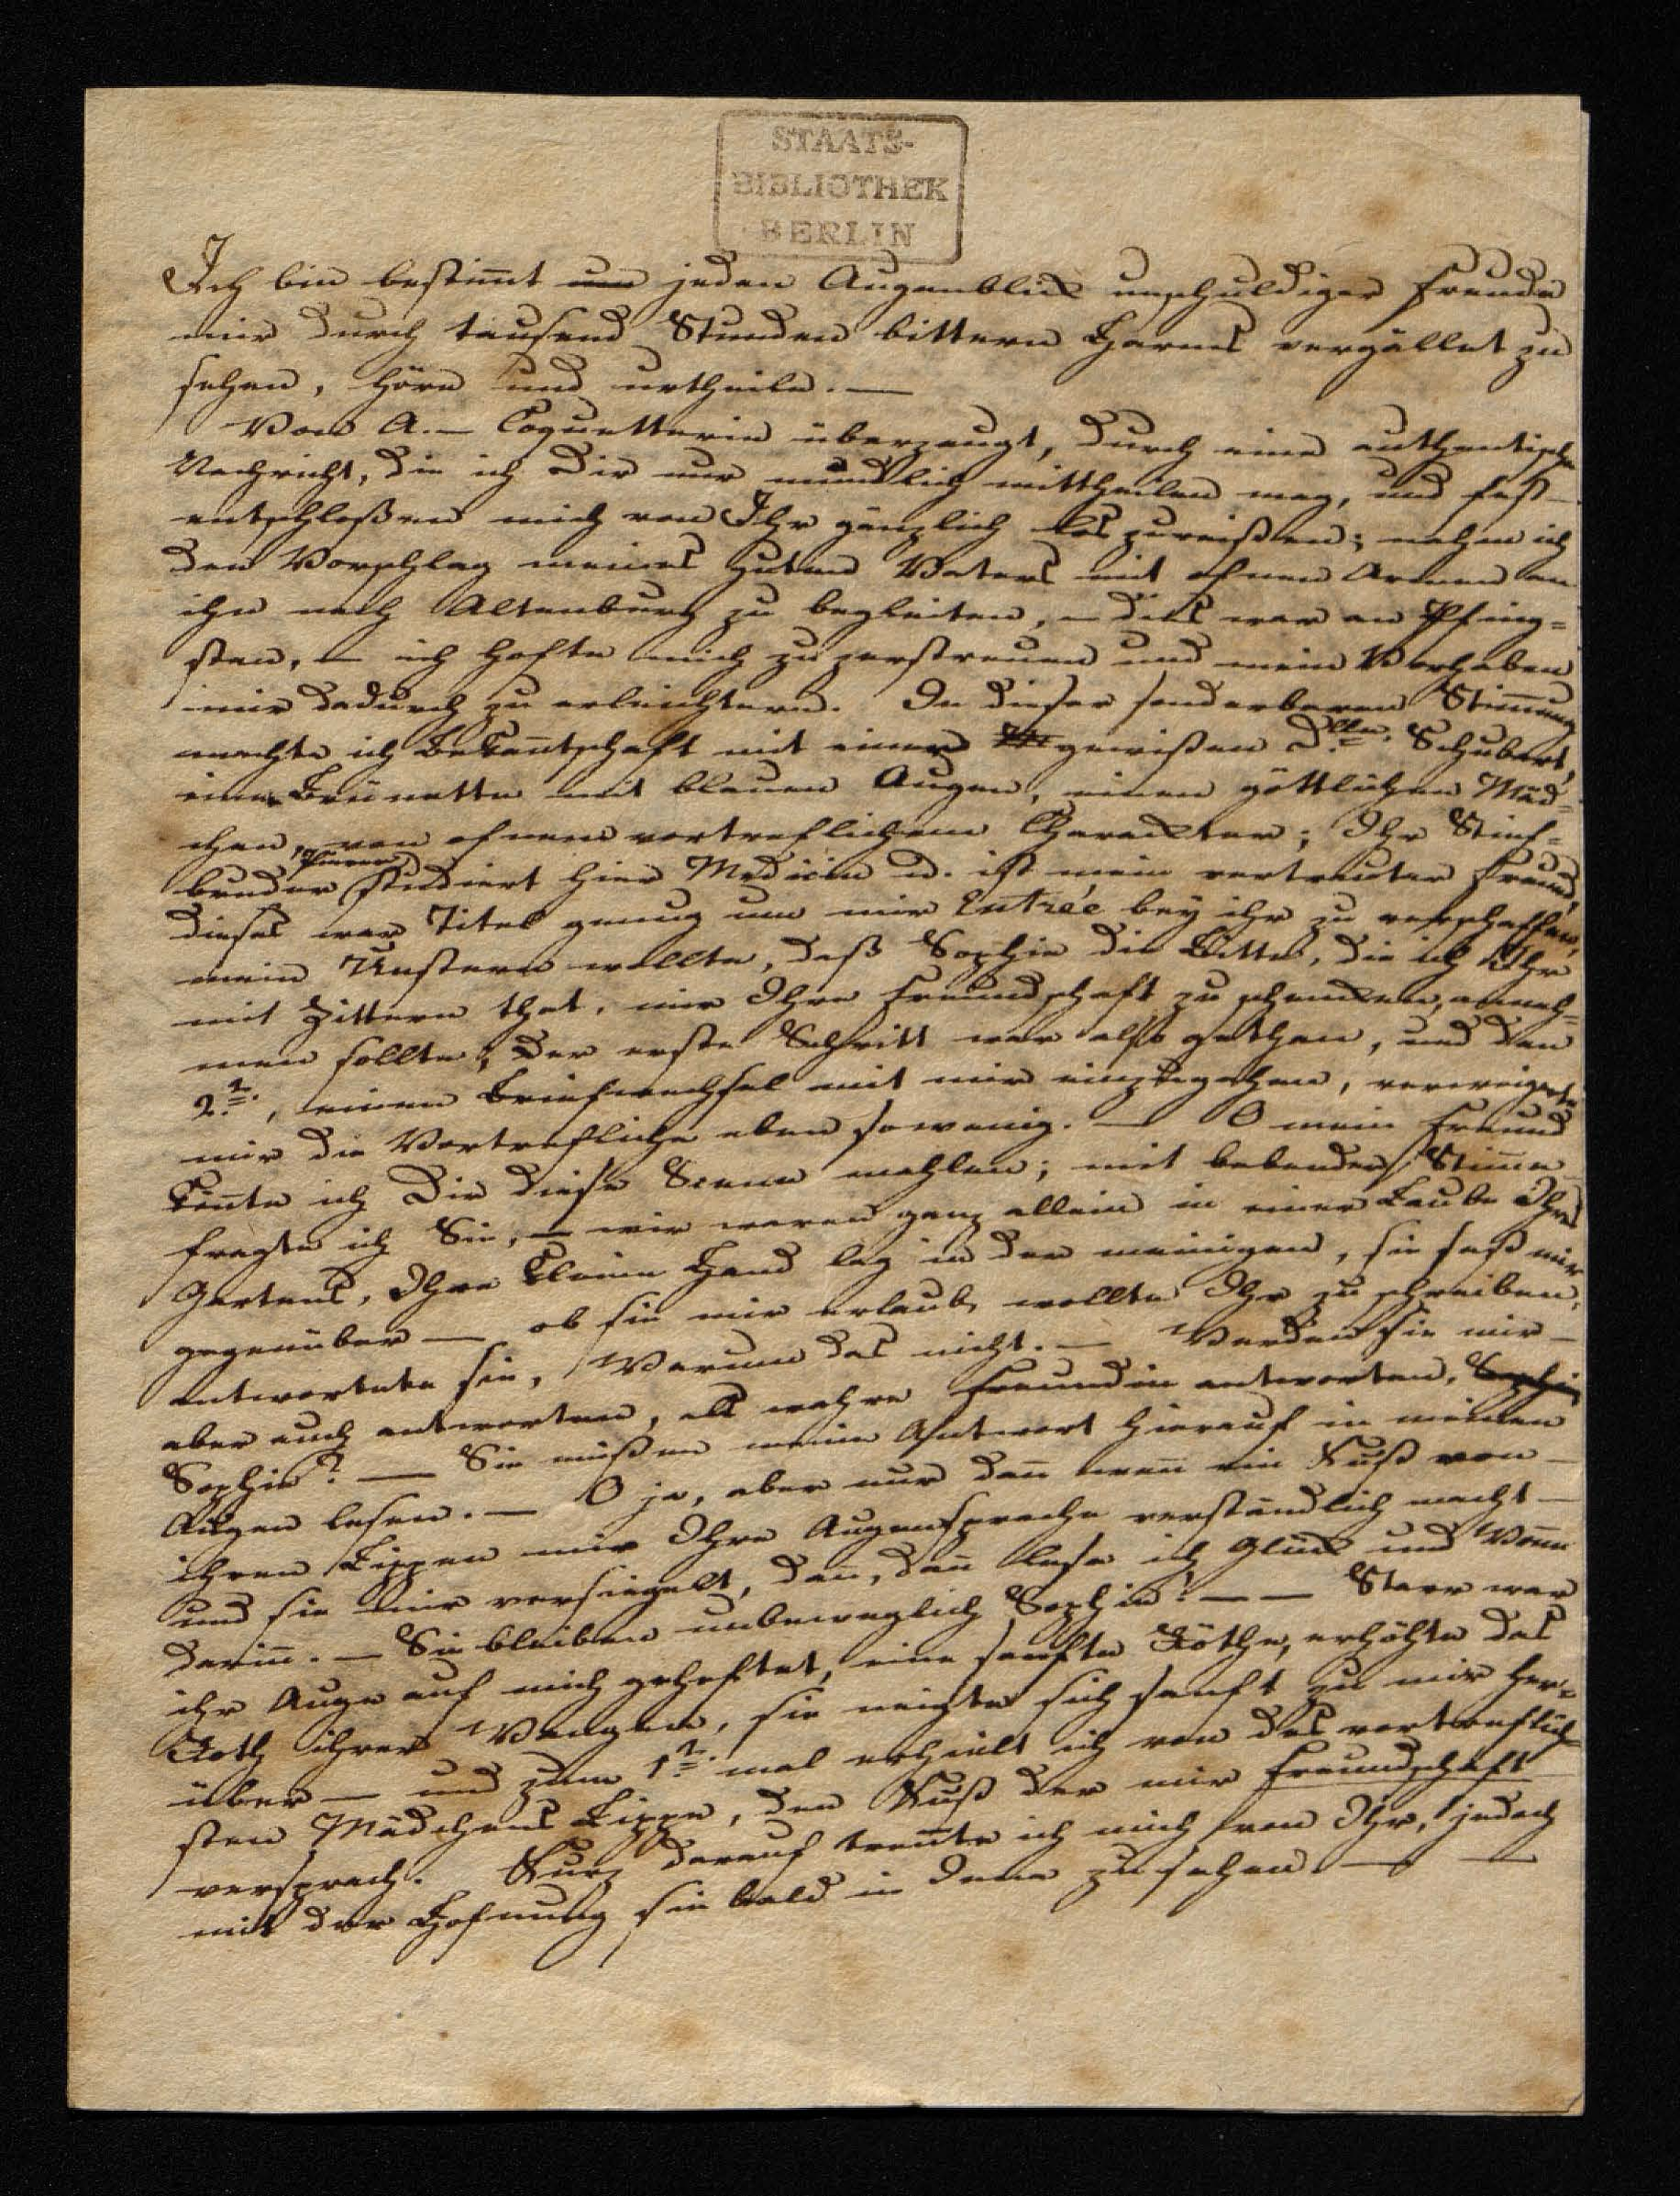 STAATS-
BIBLIOTHEK
BERLIN
Ich bin bestim̄t um jeden Augenblick unschuldiger Freude
mir durch tausend Stunden bittern Harms vergället zu
sehen, höre und urtheile. —
Von A. — Coquetterie überzeugt, durch eine authentische
Nachricht, die ich Dir nur mündlich mittheilen mag, und fest
entschloßen mich von Ihr gänzlich los zureißen; nahm ich
den Vorschlag meines guten Vaters mit ofnen Armen an
ihn nach Altenburg zu begleiten, – dies war an Pfing=
sten, – ich hofte mich zu zerstreuen und mein Vorhaben
mir dadurch zu erleichtern. In dieser sonderbaren Stim̄ung
machte ich Bekan̄tschaft mit einer gewißen Dlle. Schubert,
eine Brünette mit blauen Augen, einen göttlichen Mäd=
chen, von ofnem vortreflichem Charackter; Ihr Stief=
bruder Pierer studiert hier Medicin u. ist mein vertrauter Freund,
dieses war Titel genug um mir Entrée bey ihr zu verschaffen,
mein Unstern wollte, daß Sophie die Bitte, die ich Ihr
mit Zittern that, mir Ihre Freundschaft zu schencken, anneh=
men sollte; der erste Schritt war also gethan, und den
2t., einen Briefwechsel mit mir einzugehen, verweigerte
mir die Vortrefliche eben so wenig. — O mein Freund
kön̄te ich Dir diese Scene mahlen; mit bebender Stim̄e
fragte ich Sie, – wir waren ganz allein in einer Laube Ihres
Gartens, Ihre kleine Hand lag in der meinigen, sie saß mir
gegenüber — ob sie mir erlauben wollte Ihr zu schreiben,
antwortete sie, Warum das nicht. — Werden sie mir —
aber auch antworten, als wahre Freundin antworten, Sophie
Sophie? — Sie müßen meine Antwort hierauf in meinen
Augen lesen. — O ja, aber nur dan̄ wen̄ ein Kuß von —
ihren Lippen mir Ihre Augensprache verständlich macht —
und sie mir versiegelt, dan̄, dan̄ lese ich Glück und Won̄e
darin̄. — Sie bleiben unbeweglich Sophie? — — Starr war
ihr Auge auf mich geheftet, eine sanfte Röthe, erhöhte das
Roth ihrer Wangen, sie neigte sich sanft zu mir her=
über — und zum 1t. mal erhielt ich von des vortreflich=
sten Mädchens Lippe, den Kuß der mir Freundschaft
versprach. Kurz darauf tren̄te ich mich von Ihr, jedoch
mit der Hofnung sie bald in Jena zu sehen. — —